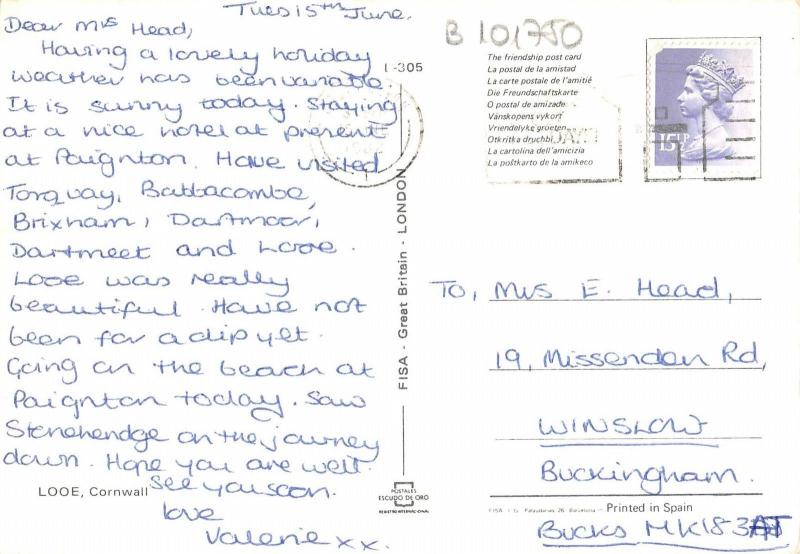 Tues 15th June.
Dear Mrs Head,
Having a lovely holiday
weather has been variable.
It is sunny today. Staying
at a nice hotel at present
at Paignton. Have visited
Torquay, Babbacombe,
Brixham, Dartmoor,
Dartmeet and Looe.
Looe was really
beautiful. Have not
been for a dip yet.
Going on the beach at
Paignton today. Saw
Stonehendge on the journey
down. Hope you are well.
See you soon.
love
Valerie xx.
LOOE, Cornwall
L-305
FISA - Great Britain - LONDON
POSTALES
ESCUDO DE ORO
REGISTRO INTERNACIONAL
B 101750
The friendship post card
La postal de la amistad
La carte postale de l'amitié
Die Freundschaftskarte
O postal de amizade
Vänskapens vykort
Vriendelyke groeten
Otkritka druchbi
La cartolina dell'amicizia
La poŝtkarto de la amikeco
15½P
To, Mrs E. Head,
19, Missenden Rd,
WINSLOW
Buckingham.
Bucks MK18 3AT
FISA I. G. Palaudarias, 26 Barcelona - Printed in Spain